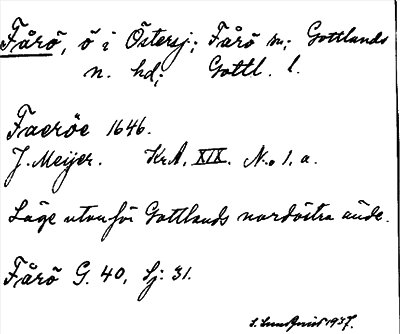 Fårö, ö i Östersj; Fårö sn; Gottlands
n. hd; Gottl. l.
Faeröe 1646.
J. Meijer. KrA. XIX. N.o 1. a.
Läge utanför Gottlands nordöstra ände.
Fårö G. 40, Sj: 31.
S. Lundqvist 1937.